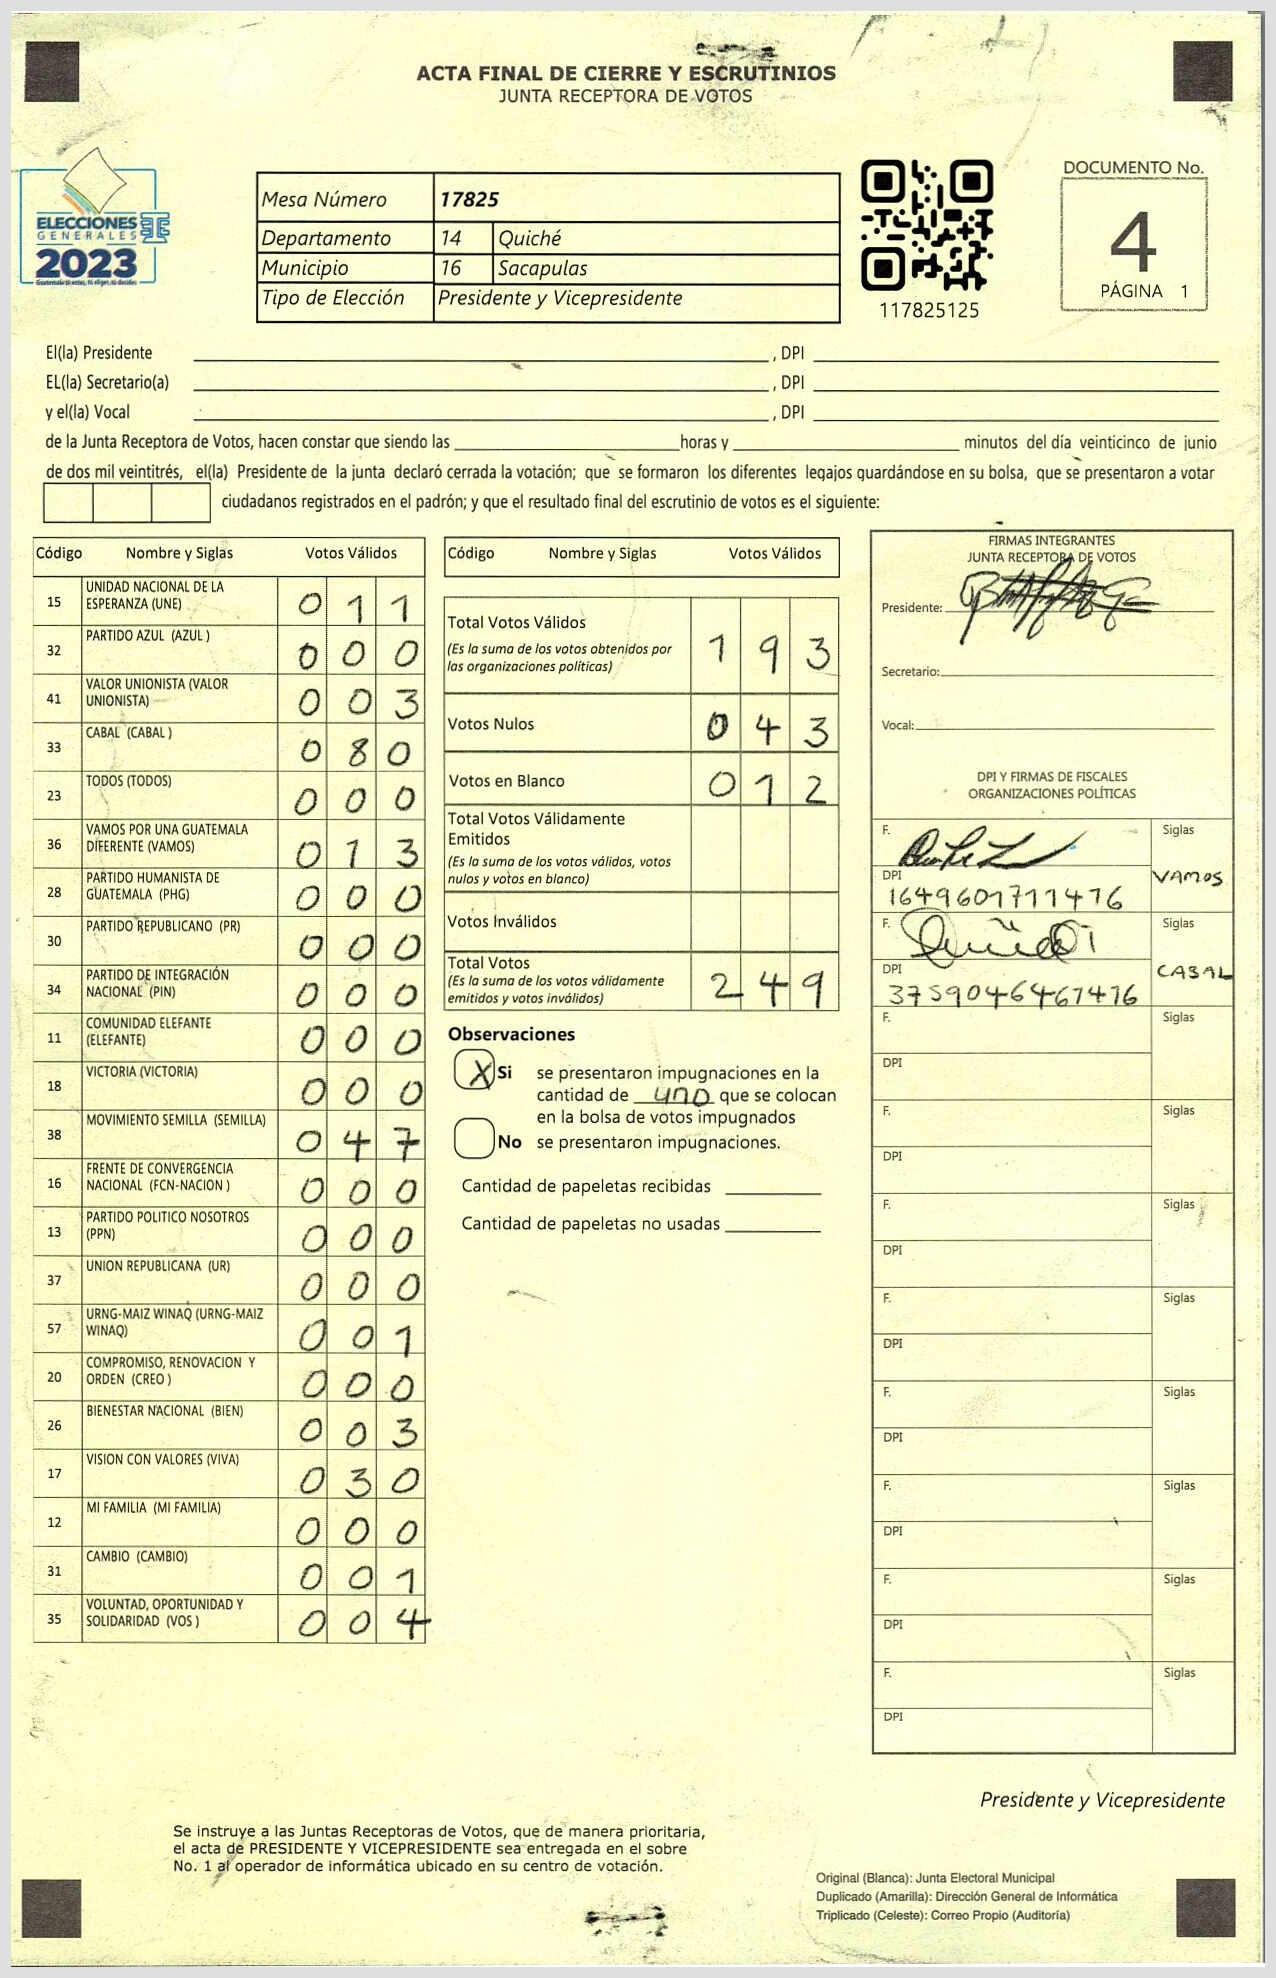 ACTA FINAL DE CIERRE Y ESCRUTINIOS
JUNTA RECEPTORA DE VOTOS
ELECCIONES
GENERALES
2023
Mesa Número 17825
Departamento 14 Quiché
Municipio 16 Sacapulas
Tipo de Elección Presidente y Vicepresidente
117825125
DOCUMENTO No.
4
PÁGINA 1
El(la) Presidente , DPI
EL(la) Secretario(a) , DPI
y el(la) Vocal , DPI
de la Junta Receptora de Votos, hacen constar que siendo las horas y minutos del día veinticinco de junio
de dos mil veintitrés, el(la) Presidente de la junta declaró cerrada la votación; que se formaron los diferentes legajos guardándose en su bolsa, que se presentaron a votar
ciudadanos registrados en el padrón; y que el resultado final del escrutinio de votos es el siguiente:
Código Nombre y Siglas Votos Válidos
15 UNIDAD NACIONAL DE LA ESPERANZA (UNE) 0 1 1
32 PARTIDO AZUL (AZUL ) 0 0 0
41 VALOR UNIONISTA (VALOR UNIONISTA) 0 0 3
33 CABAL (CABAL ) 0 8 0
23 TODOS (TODOS) 0 0 0
36 VAMOS POR UNA GUATEMALA DIFERENTE (VAMOS) 0 1 3
28 PARTIDO HUMANISTA DE GUATEMALA (PHG) 0 0 0
30 PARTIDO REPUBLICANO (PR) 0 0 0
34 PARTIDO DE INTEGRACIÓN NACIONAL (PIN) 0 0 0
11 COMUNIDAD ELEFANTE (ELEFANTE) 0 0 0
18 VICTORIA (VICTORIA) 0 0 0
38 MOVIMIENTO SEMILLA (SEMILLA) 0 4 7
16 FRENTE DE CONVERGENCIA NACIONAL (FCN-NACION ) 0 0 0
13 PARTIDO POLITICO NOSOTROS (PPN) 0 0 0
37 UNION REPUBLICANA (UR) 0 0 0
57 URNG-MAIZ WINAQ (URNG-MAIZ WINAQ) 0 0 1
20 COMPROMISO, RENOVACION Y ORDEN (CREO ) 0 0 0
26 BIENESTAR NACIONAL (BIEN) 0 0 3
17 VISION CON VALORES (VIVA) 0 3 0
12 MI FAMILIA (MI FAMILIA) 0 0 0
31 CAMBIO (CAMBIO) 0 0 1
35 VOLUNTAD, OPORTUNIDAD Y SOLIDARIDAD (VOS ) 0 0 4
Código Nombre y Siglas Votos Válidos
Total Votos Válidos 1 9 3
(Es la suma de los votos obtenidos por
las organizaciones políticas)
Votos Nulos 0 4 3
Votos en Blanco 0 1 2
Total Votos Válidamente
Emitidos
(Es la suma de los votos válidos, votos
nulos y votos en blanco)
Votos Inválidos
Total Votos 2 4 9
(Es la suma de los votos válidamente
emitidos y votos inválidos)
Observaciones
X Si se presentaron impugnaciones en la
cantidad de uno que se colocan
en la bolsa de votos impugnados
No se presentaron impugnaciones.
Cantidad de papeletas recibidas
Cantidad de papeletas no usadas
FIRMAS INTEGRANTES
JUNTA RECEPTORA DE VOTOS
Presidente:
Secretario:
Vocal:
DPI Y FIRMAS DE FISCALES
ORGANIZACIONES POLÍTICAS
F. Siglas
DPI VAMOS
1649601711476
F. Siglas
DPI CABAL
3759046461476
F. Siglas
DPI
F. Siglas
DPI
F. Siglas
DPI
F. Siglas
DPI
F. Siglas
DPI
F. Siglas
DPI
F. Siglas
DPI
F. Siglas
DPI
Presidente y Vicepresidente
Se instruye a las Juntas Receptoras de Votos, que de manera prioritaria,
el acta de PRESIDENTE Y VICEPRESIDENTE sea entregada en el sobre
No. 1 al operador de informática ubicado en su centro de votación.
Original (Blanca): Junta Electoral Municipal
Duplicado (Amarilla): Dirección General de Informática
Triplicado (Celeste): Correo Propio (Auditoría)